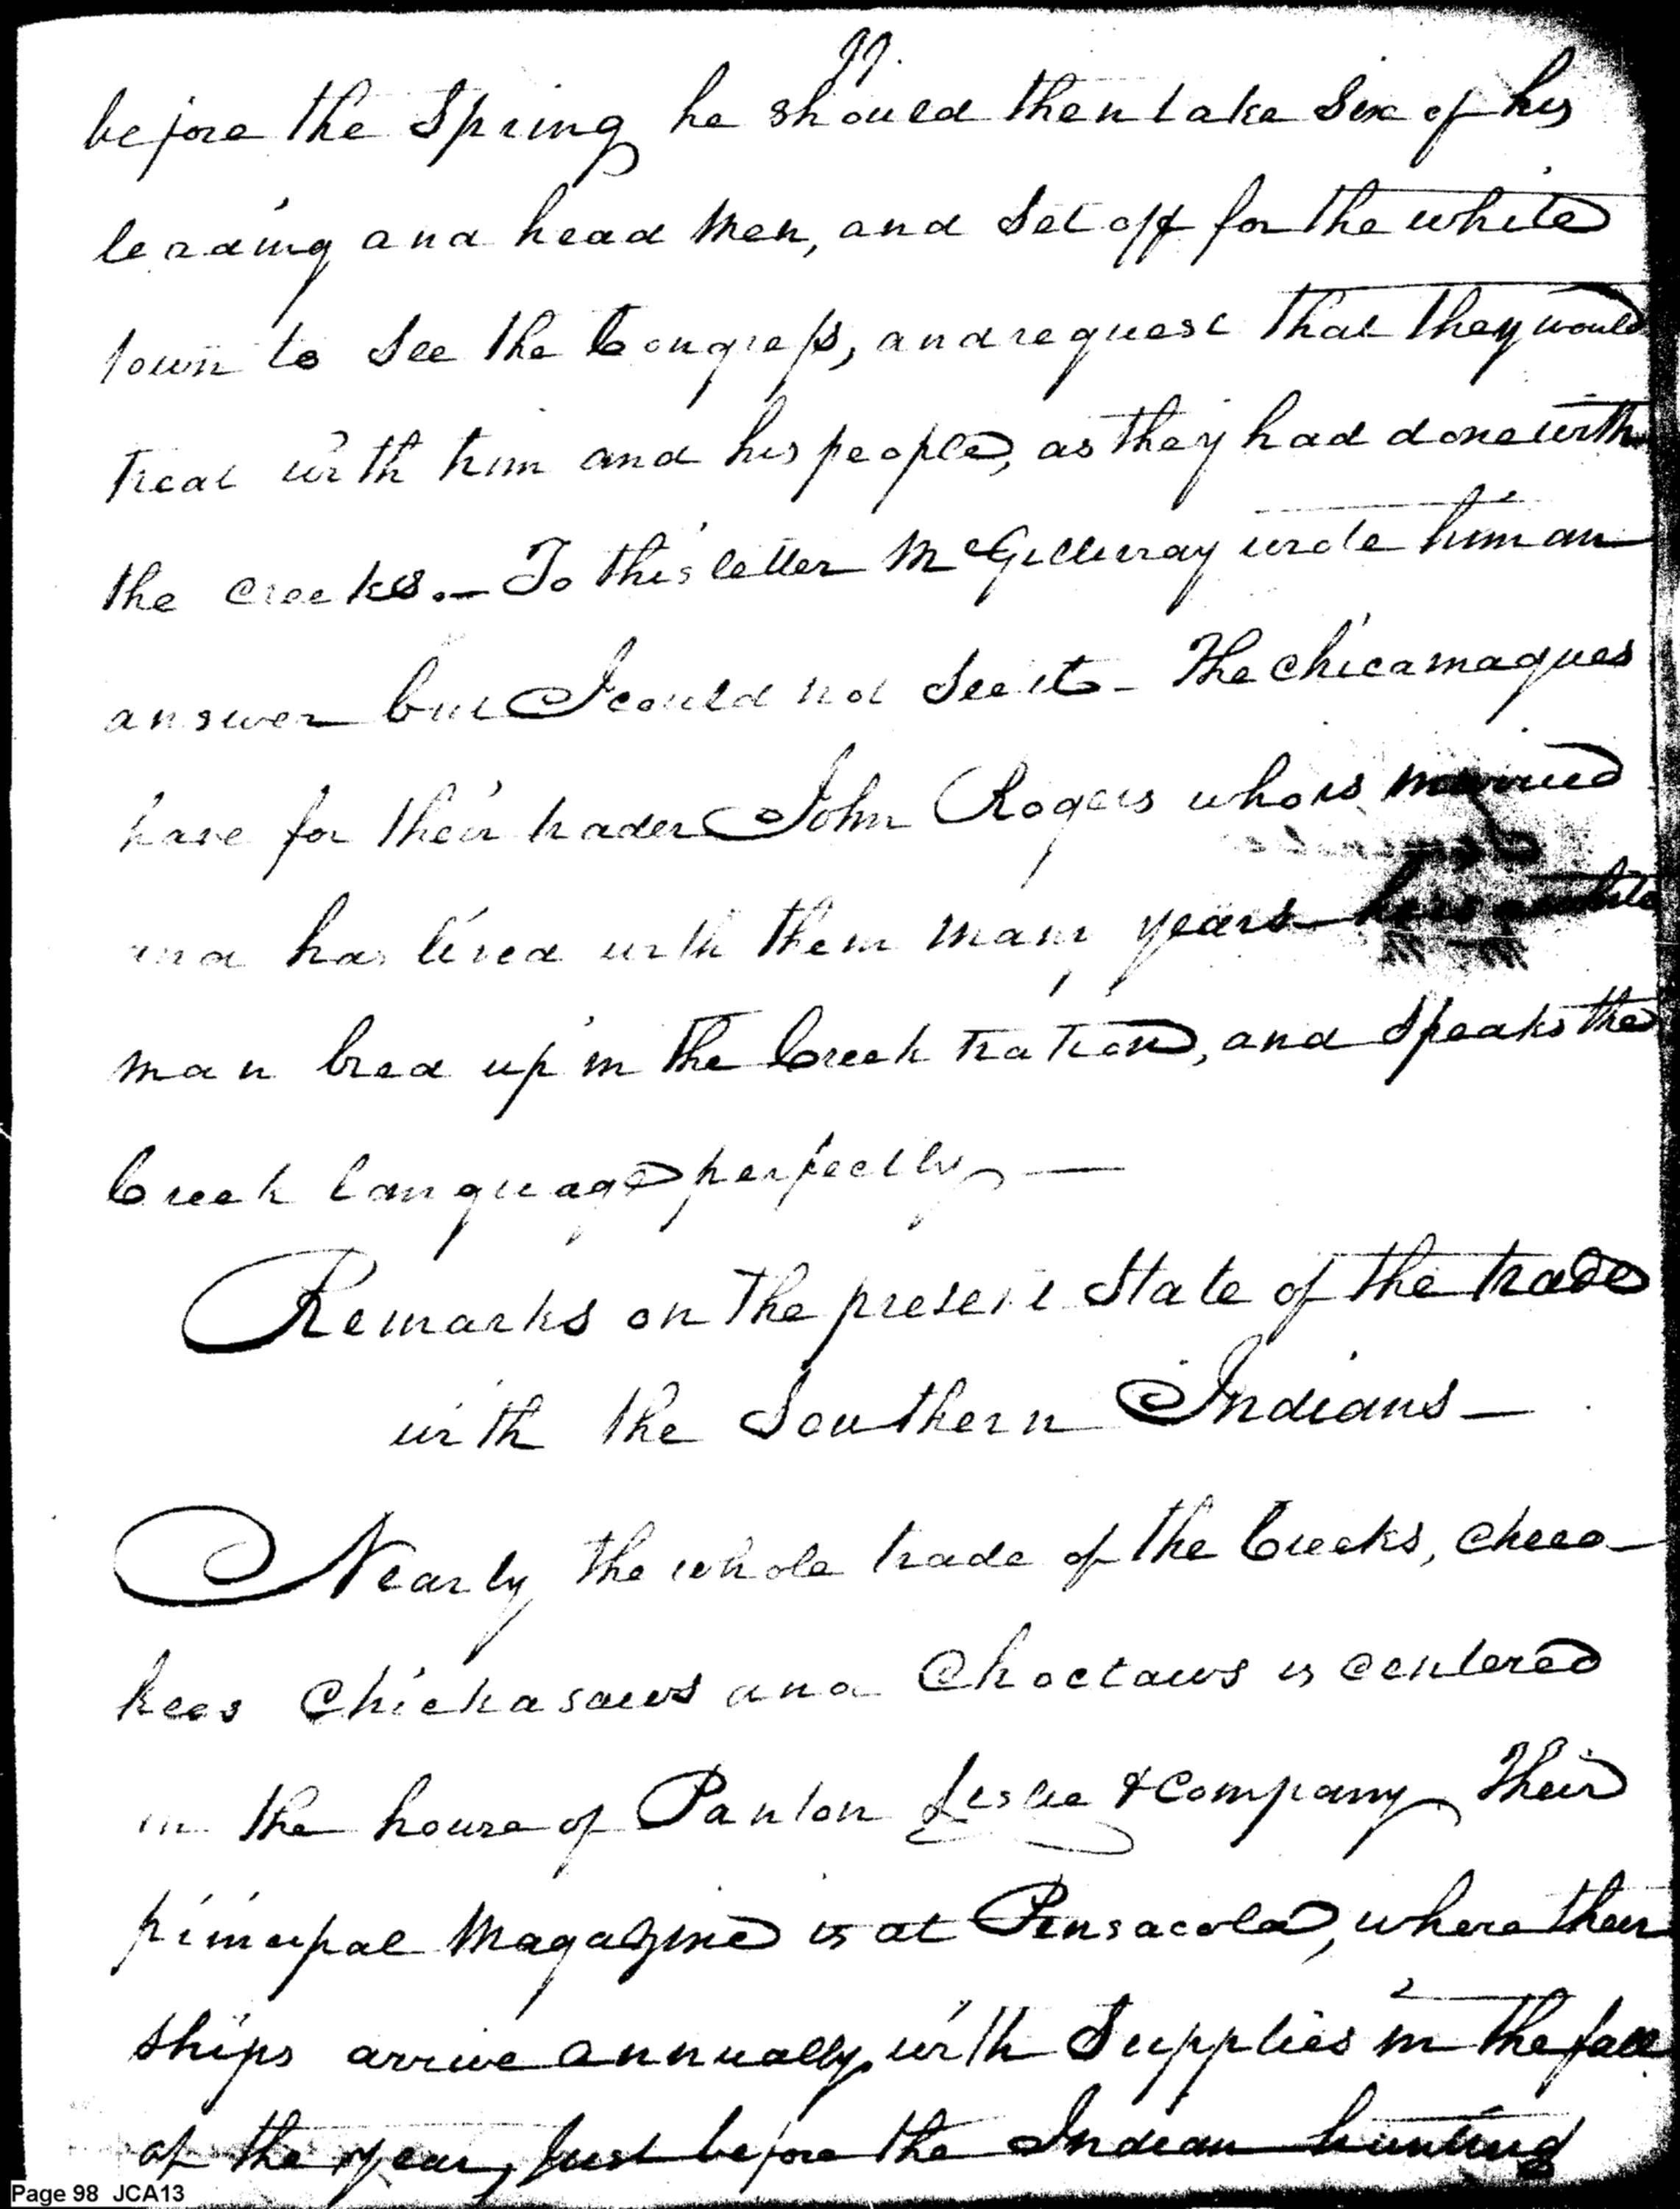 99.
before the Spring he should then take Six of his
leading and head Men, and Set off for the white
town to See the Congress, and request that they would
treat with him and his people, as they had done with
the creeks. — To this letter McGillivray wrote him an
answer but I could not See it — The chicamagues
have for their trader John Rogers who is married
and has lived with them many years he is a white
man bred up in the Creek nation, and Speaks the
Creek language perfectly —
Remarks on the present State of the trade
with the Southern Indians —
Nearly the whole trade of the Creeks, cheeo-
kees Chickasaws and Choctaws is centered
in the house of Panton Leslie & Company Their
principal Magazine is at Pensacola, where their
Ships arrive annually with Supplies in the fall
of the year, Just before the Indian hunting
Page 98 JCA13